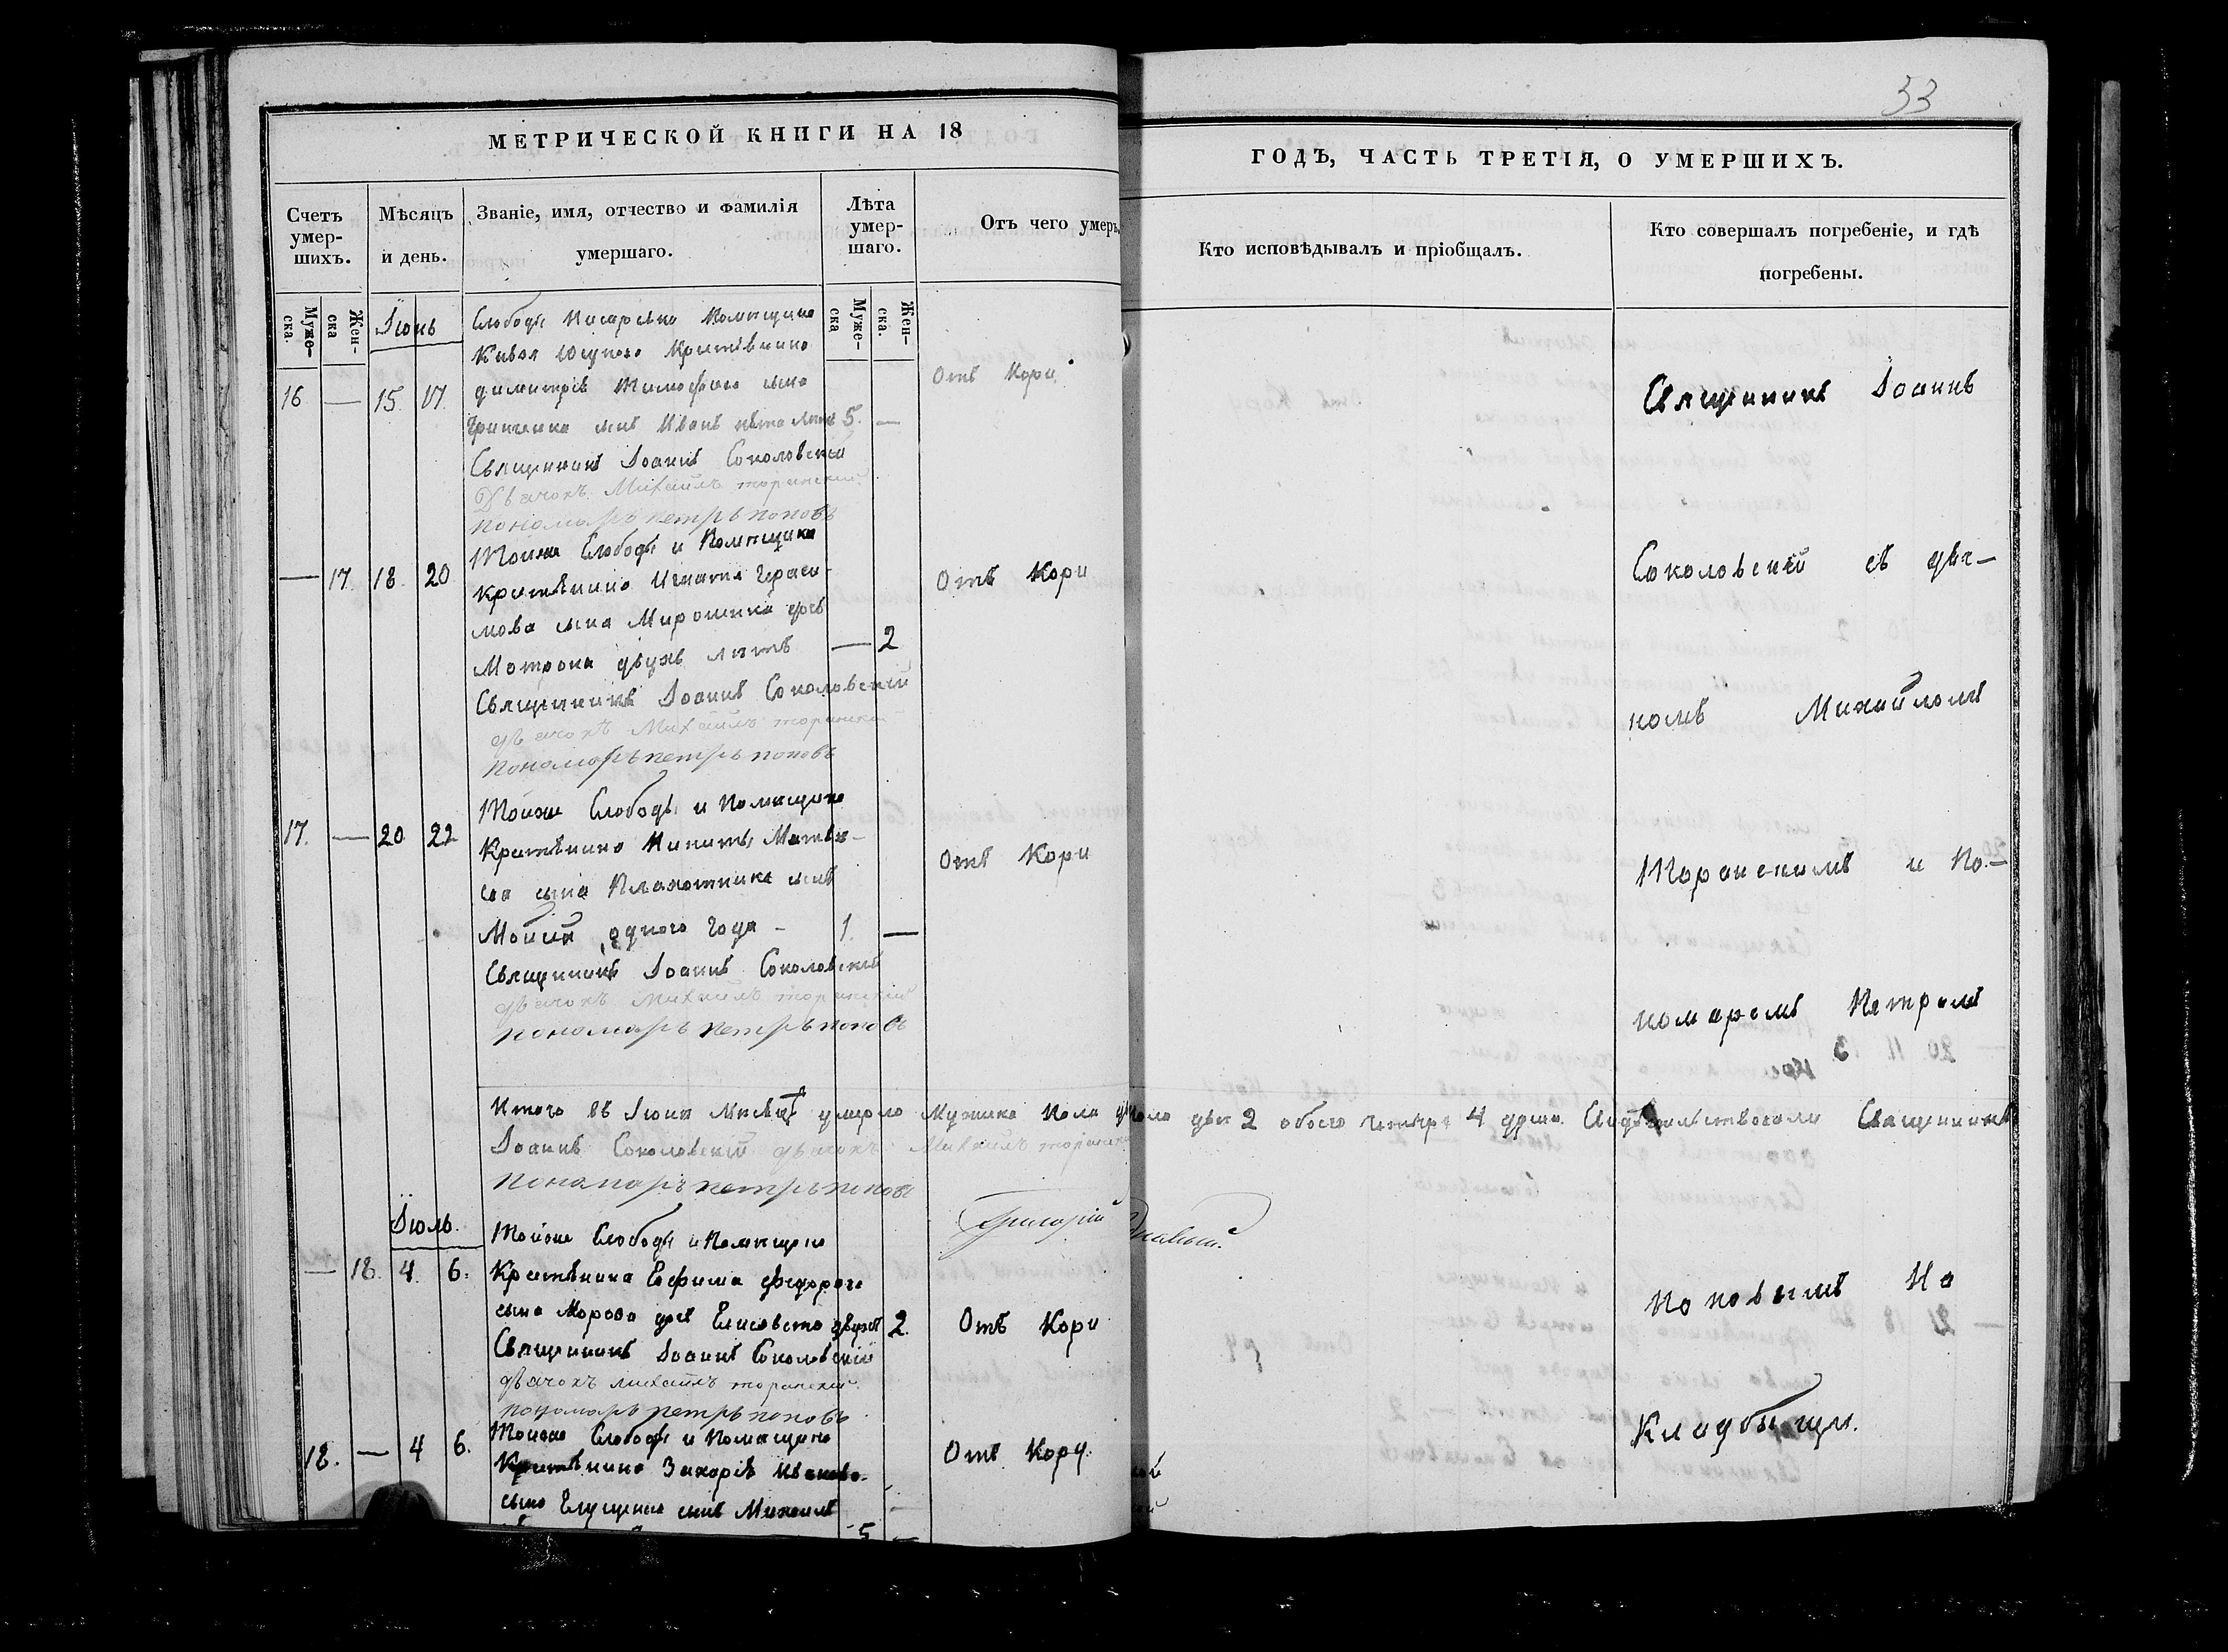 33
МЕТРИЧЕСКОЙ КНИГИ НА 18
ГОДЪ, ЧАСТЬ ТРЕТІЯ, О УМЕРШИХЪ.
Счетъ умер-шихъ.
Мѣсяцъ и день.
Званіе, имя, отчество и фамилія умершаго.
Лѣта умер-шаго.
Отъ чего умеръ
Кто исповѣдывалъ и пріобщалъ.
Кто совершалъ погребеніе, и гдѣ погребены.
Муже-ска.
Жен-ска
Муже-ска
Жен-ска.
Іюнь
Слободы Писаревка Помѣщика
Крестьянина
16 — 15. 17.
Димитрія Тимофѣева сына
сынъ Иванъ пята лѣтъ 5. —
Отъ Кори
Священникъ Іоаннъ Соколовскій
Дьячокъ Михаилъ торанскій
пономарь петръ поповъ
Тойже Слободы и Помѣщика
— 17. 18. 20
Крестьянина Игнатія Гераси-
мова сына Мирошника дочь
Мотрона двухъ лѣтъ — 2
Отъ Кори
Священникъ Іоаннъ Соколовскій
дьячокъ Михаилъ торанскій
пономарь петръ поповъ
Тойже Слободы и Помѣщика
17. — 20 22
Крестьянина Никиты Матвѣ-
ева сына Плахотника сынъ
Мойсей одного года - 1. —
Отъ Кори
Священникъ Іоаннъ Соколовскій
дьячокъ Михаилъ торанскій
пономарь петръ поповъ
Итого въ Іюнѣ Мѣсяцѣ умерло Мужеска Пола два Пола двѣ 2 обоего четыре 4 души. Свидѣтельствовали Священникъ
Іоаннъ Соколовскій дьячокъ Михаилъ торанскій
пономарь петръ поповъ
Григорій
Іюль.
Тойже Слободы и Помѣщика
— 18. 4. 6.
Крестьянина Евфима Федорова
сына Мороза дочь Елисавета двухъ 2.
Отъ Кори
Священникъ Іоаннъ Соколовскій
дьячокъ михаилъ торанскій
пономарь петръ поповъ
Тойже Слободы и Помѣщика
18. — 4 6.
Крестьянина Захарія Иванова
сына сынъ Михаилъ
5 —
Отъ Кору.
Священникъ Іоаннъ
Соколовскій съ дья-
комъ Михайломъ
Торанскимъ и По-
номаремъ Петромъ
Поповымъ На
Кладбищи.